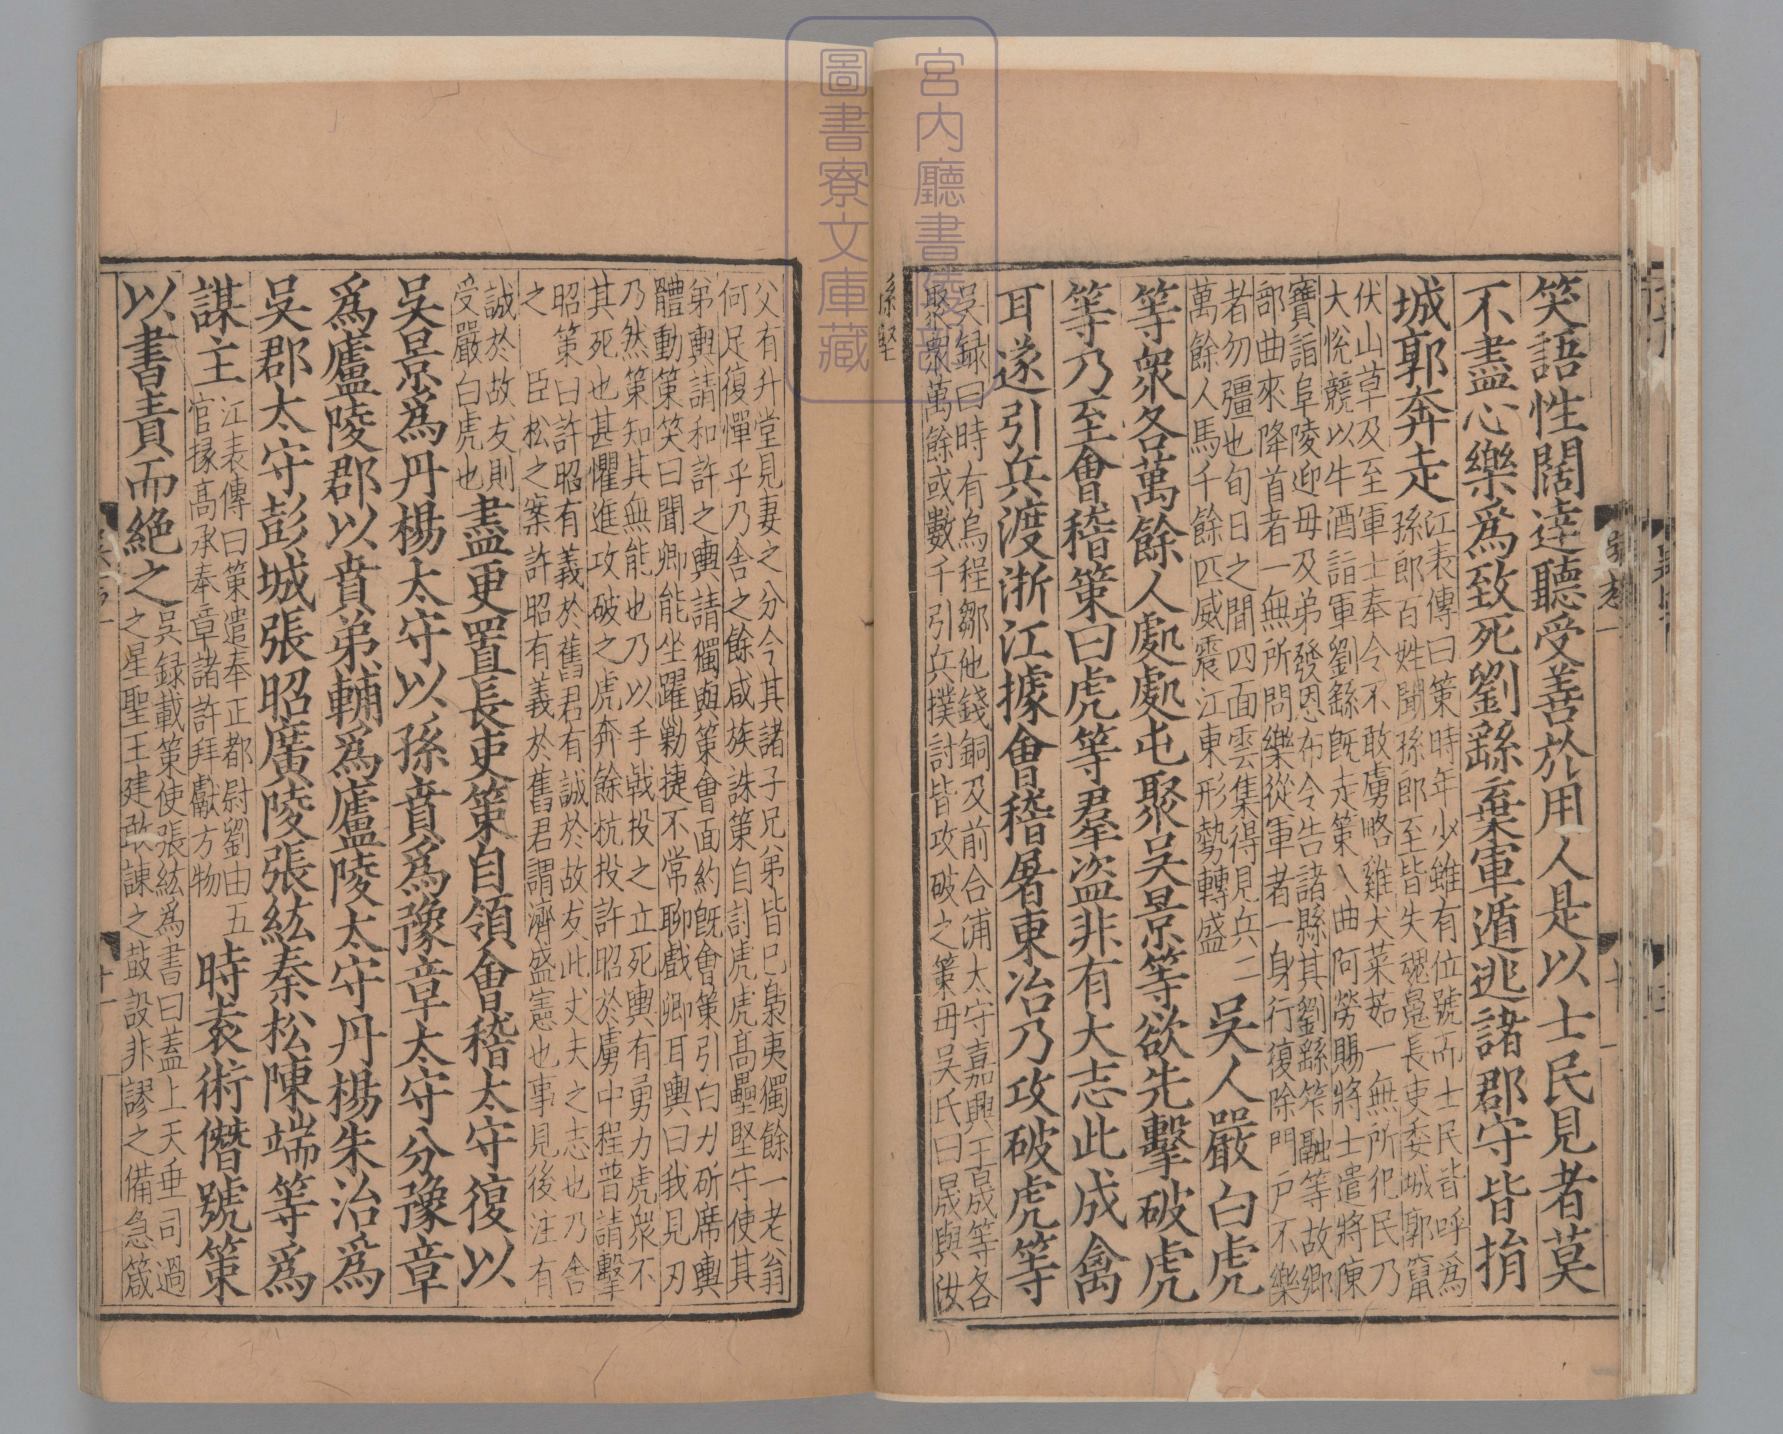 笑語性闊達聽受善於用人是以士民見者莫
不盡心樂爲致死劉繇棄軍遁逃諸郡守皆捐
城郭奔走
江表傳曰策時年少雖有位號而士民皆呼爲
孫郎百姓聞孫郎至皆失魂魄長吏委城郭竄
伏山草及至軍士奉令不敢虜略雞犬菜茹一無所犯民乃
大悅競以牛酒詣軍劉繇旣走策入曲阿勞賜將士遣將陳
寶詣阜陵迎母及弟發恩布令告諸縣其劉繇笮融等故鄉
部曲來降首者一無所問樂從軍者一身行復除門戶不樂
者勿彊也旬日之間四面雲集得見兵二
萬餘人馬千餘匹威震江東形勢轉盛
吳人嚴白虎
等衆各萬餘人處處屯聚吳景等欲先擊破虎
等乃至會稽策曰虎等羣盜非有大志此成禽
耳遂引兵渡浙江據會稽屠東冶乃攻破虎等
吳録曰時有烏程鄒他錢銅及前合浦太守嘉興王晟等各
聚衆萬餘或數千引兵撲討皆攻破之策母吳氏曰晟與汝
孫堅
宮内廳書陵部
圖書寮文庫藏
父有升堂見妻之分今其諸子兄弟皆已梟夷獨餘一老翁
何足復憚乎乃舍之餘咸族誅策自討虎虎高壘堅守使其
弟輿請和許之輿請獨與策會面約旣會策引白刃斫席輿
體動策笑曰聞卿能坐躍勦捷不常聊戲卿耳輿曰我見刃
乃然策知其無能也乃以手戟投之立死輿有勇力虎衆不
其死也甚懼進攻破之虎奔餘杭投許昭於虜中程普請擊
昭策曰許昭有義於舊君有誠於故友此丈夫之志也乃舍
之 臣松之案許昭有義於舊君謂濟盛憲也事見後注有
誠於故友則
受嚴白虎也
盡更置長吏策自領會稽太守復以
吳景爲丹楊太守以孫賁爲豫章太守分豫章
爲廬陵郡以賁弟輔爲廬陵太守丹楊朱治爲
吳郡太守彭城張昭廣陵張紘秦松陳端等爲
謀主
江表傳曰策遣奉正都尉劉由五
官掾高承奉章詣許拜獻方物
時袁術僭號策
以書責而絕之
吳録載策使張紘爲書曰蓋上天垂司過
之星聖王建敢諫之鼓設非謬之備急箴
十一